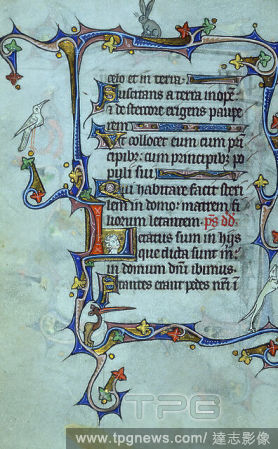 celo et in terra.
Suscitans a terra inopē
⁊ de stercore erigens paupe
rem
Ut collocet eum cum prī
cipibꝫ cum principibꝫ po
puli sui
Qui habitare facit steri
lem in domo: matrem fi
liorum letantem. ps̄ dd̄
Letatus sum in hijs
que dicta sunt m̄:
in domum dn̄i ibimus
Stantes erant pedes nr̄i ī
TPG
www.tpgnews.com / 達志影像